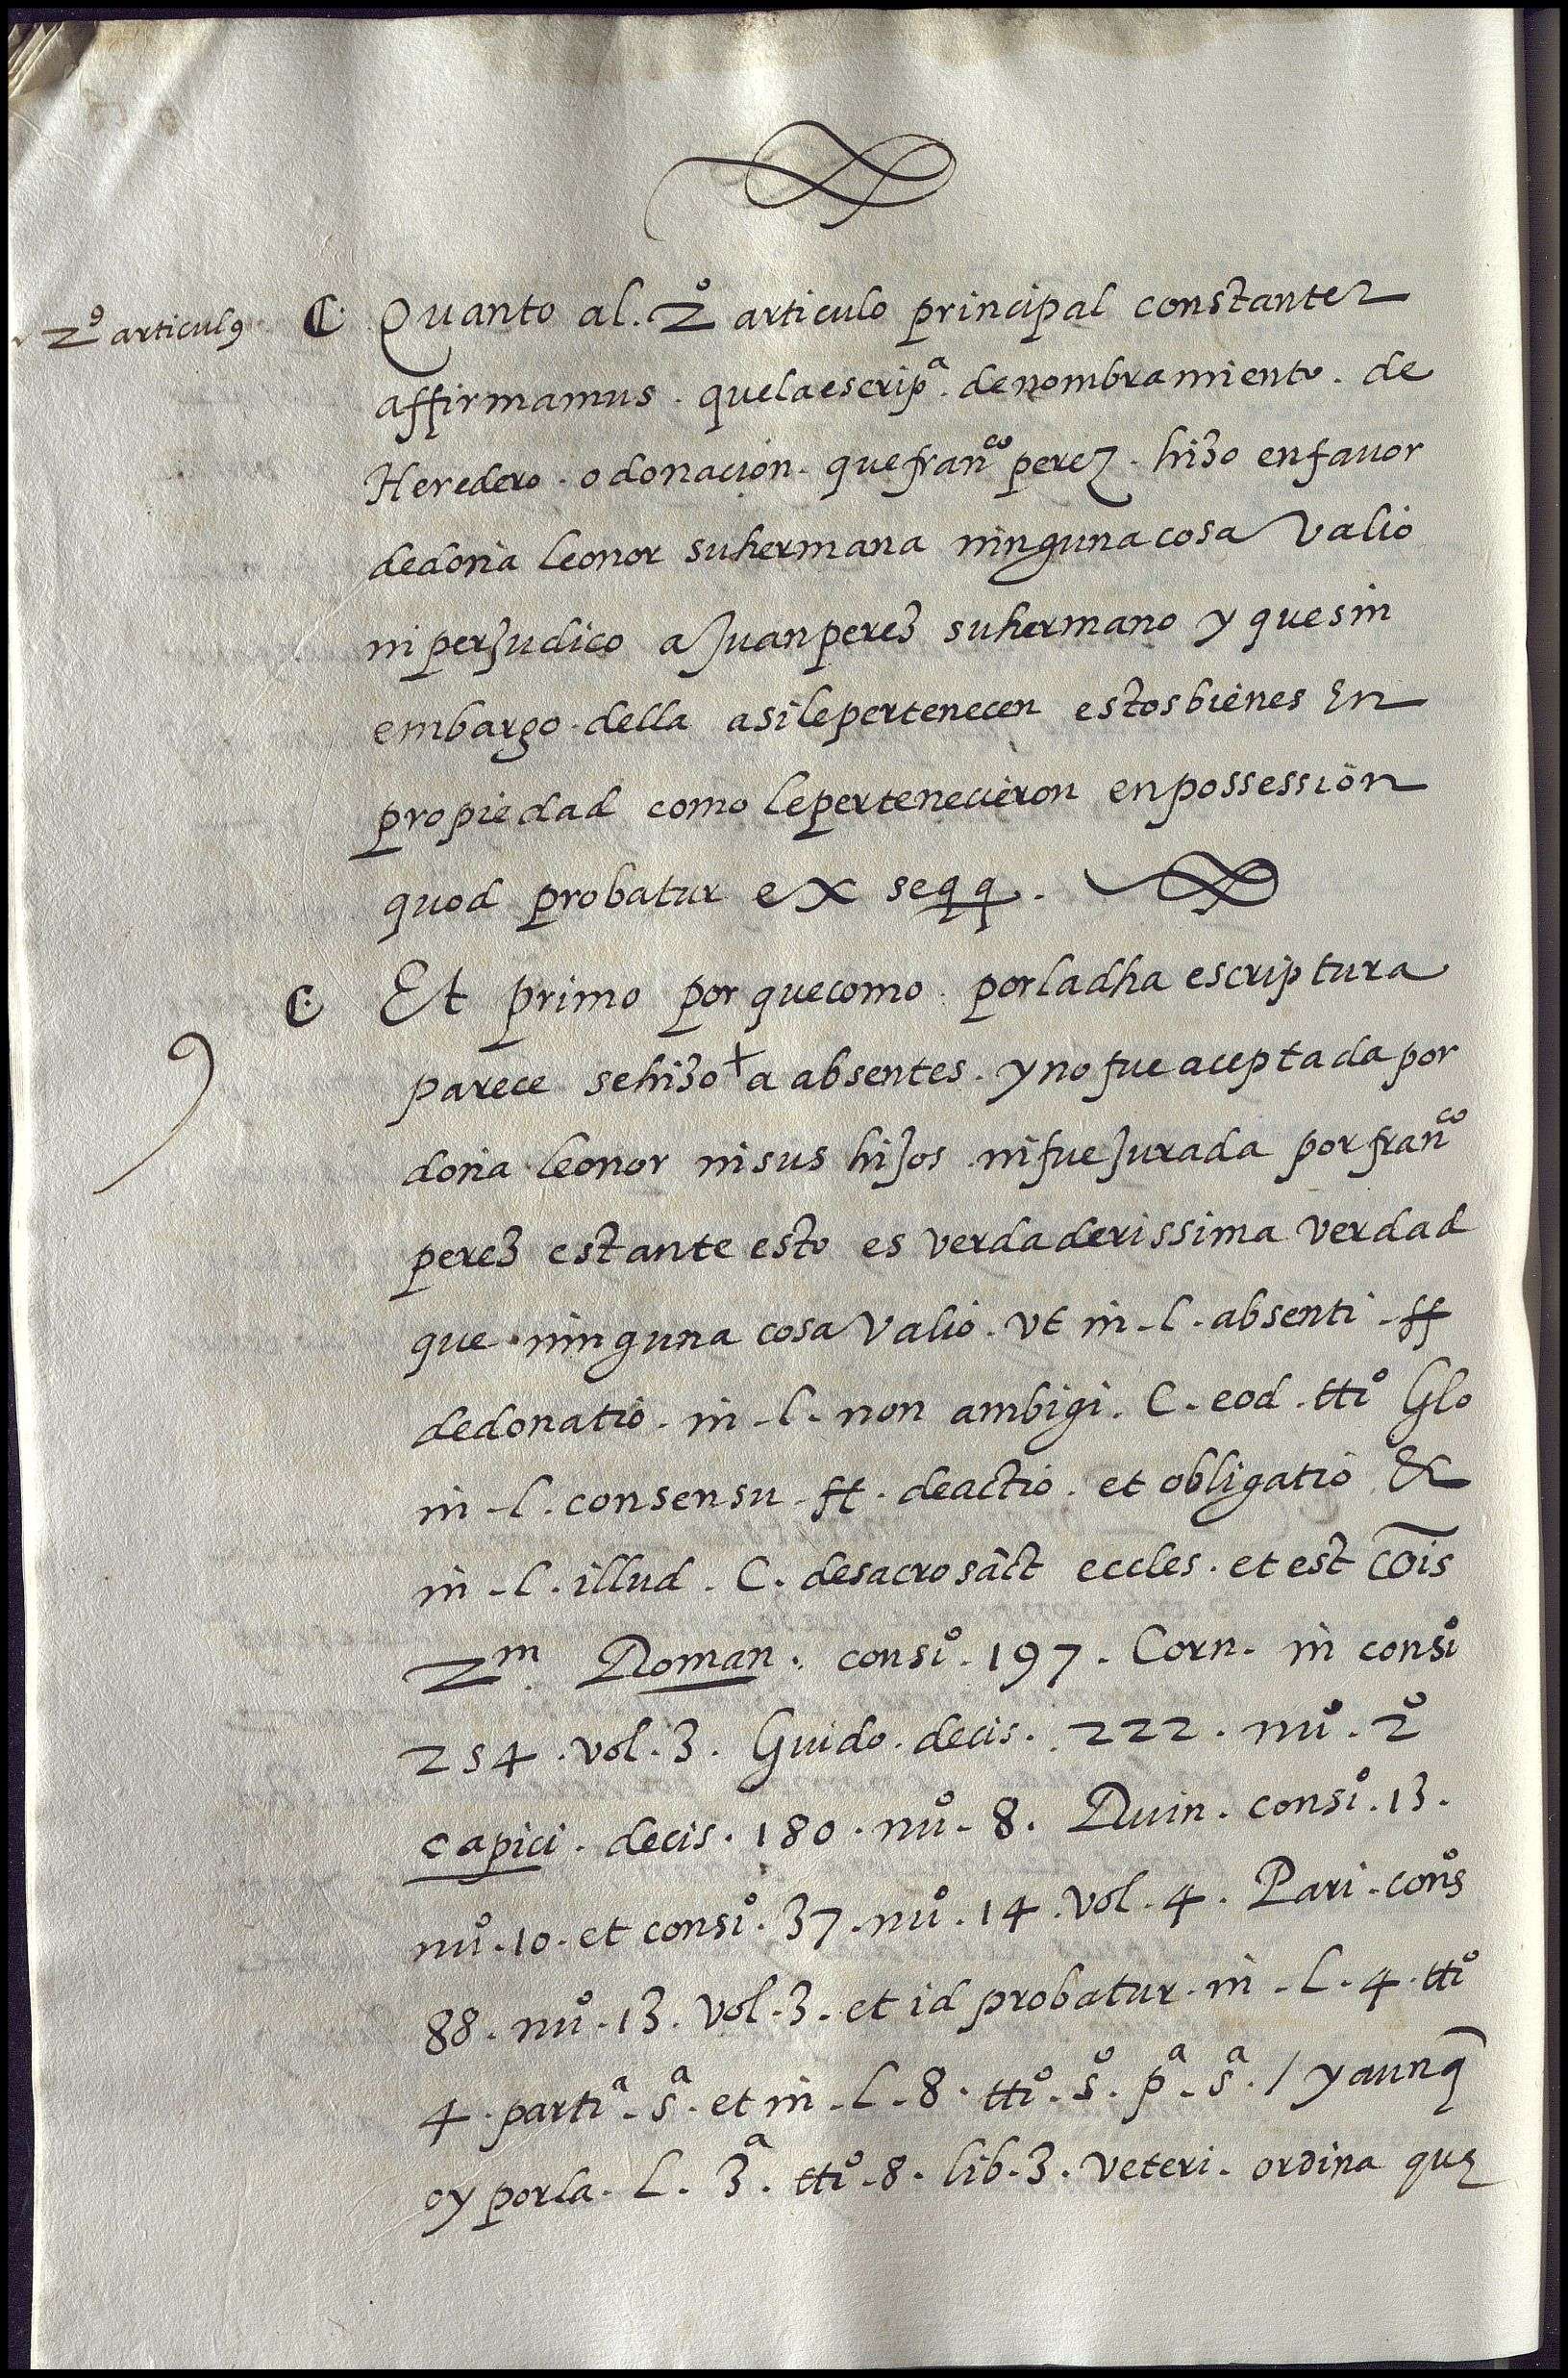 2º articulꝰ
¶ Quanto al. 2º articulo principal constanter
affirmamus. que la escripª. de nombramiento. de
Heredero. o donacion. que franco perez. hizo en favor
de doña leonor su hermana ninguna cosa valio
ni perjudico a Juan perez su hermano y que sin
embargo. della asi le pertenecen estos bienes En
propiedad como le pertenecieron en possession
quod probatur ex seqq.
¶ Et primo por que como. por la dha escriptura
parece se hizo + a absentes. y no fue aceptada por
doña leonor ni sus hijos. ni fue jurada por franco
perez estante esto es verdaderissima verdad
que ninguna cosa valio. vt in. l. absenti. ff
de donatio. in. l. non ambigi. C. eod. ttº Glo
in. l. consensu. ff. de actio. et obligatio &
in. l. illud. C. de sacrosāct eccles. et est cōis
2m. Roman. consiº. 197. Corn. in consiº
254. vol. 3. Guido. decis. 222. nuº. 2º
capici. decis. 180. nuº. 8. Ruin. consiº. 13.
nuº. 10. et consiº. 37. nuº. 14. vol. 4. Pari. consº
88. nuº. 13. vol. 3. et id probatur. in. l. 4. ttº
4. partiª. sª. et in. l. 8. ttº. sº. pª. sª. / y aunq̄
oy por la. L. 3ª. ttº. 8. lib. 3. veteri. ordina que